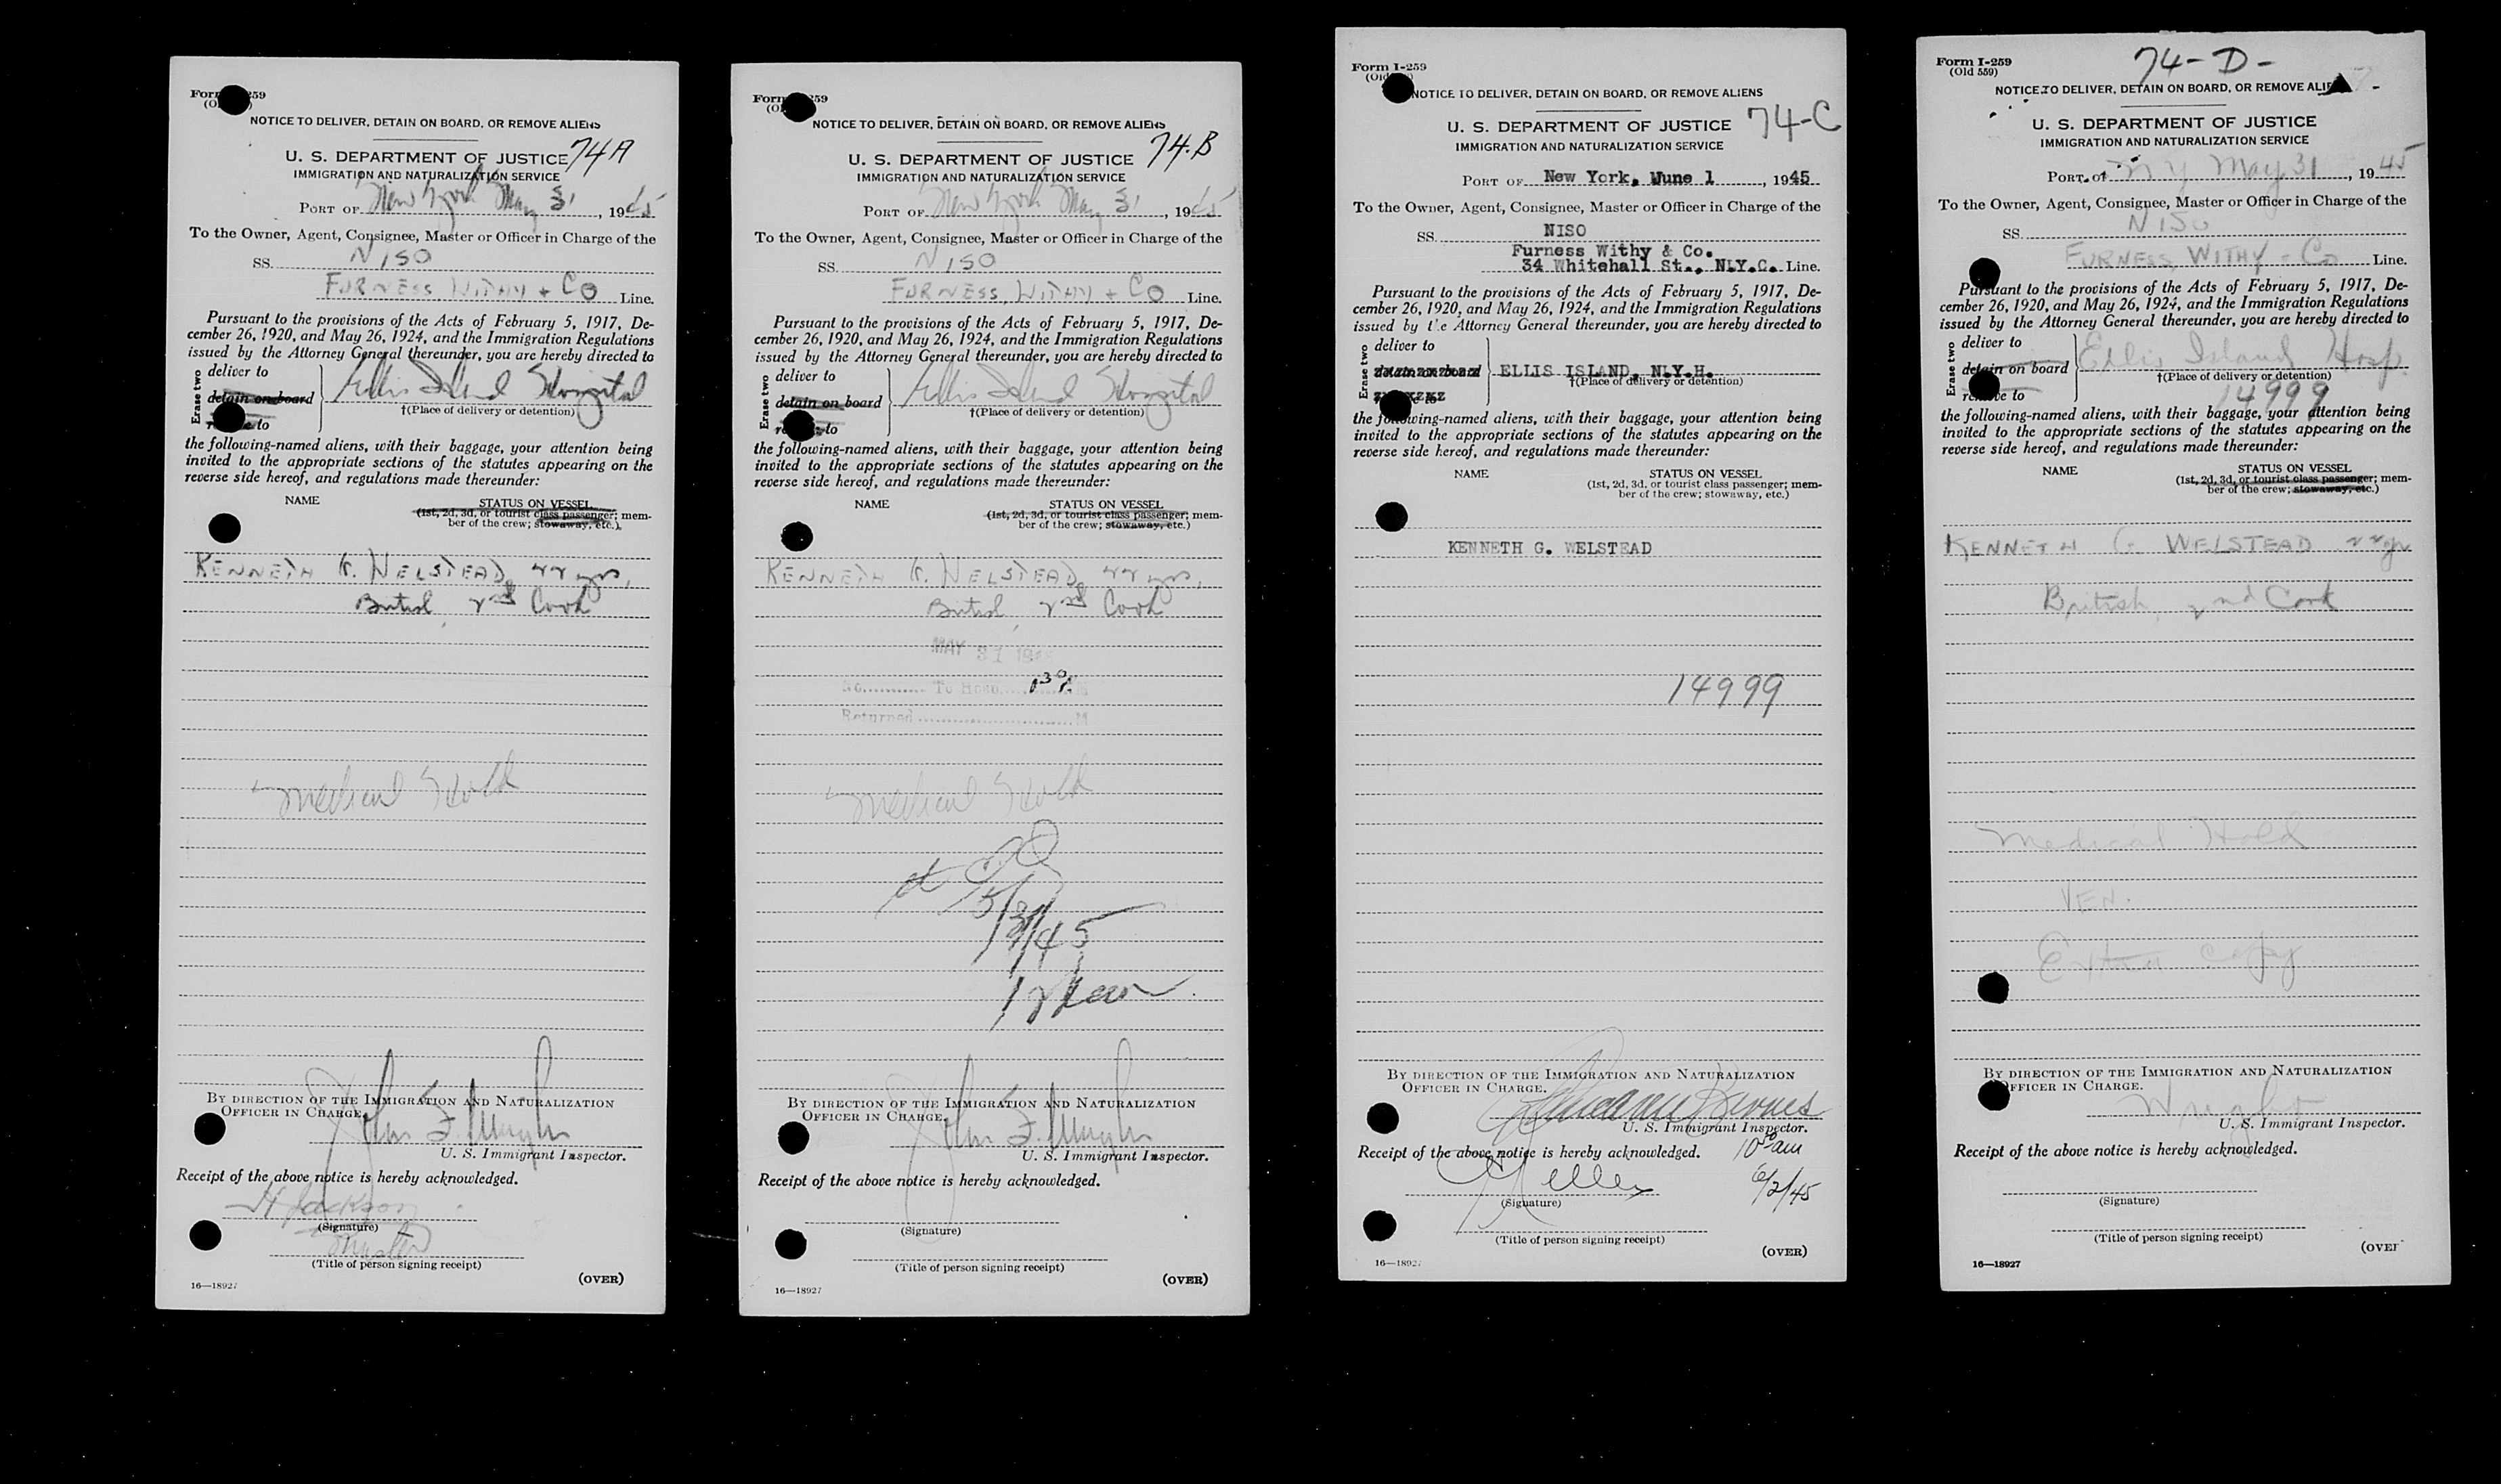 Form I-259
(Old 559)
NOTICE TO DELIVER, DETAIN ON BOARD, OR REMOVE ALIENS
74A
U. S. DEPARTMENT OF JUSTICE
IMMIGRATION AND NATURALIZATION SERVICE
PORT OF New York May 31, 1945
To the Owner, Agent, Consignee, Master or Officer in Charge of the
SS. NISO
FURNESS, WITHY + CO Line.
Pursuant to the provisions of the Acts of February 5, 1917, De-
cember 26, 1920, and May 26, 1924, and the Immigration Regulations
issued by the Attorney General thereunder, you are hereby directed to
Erase two
deliver to
detain on board
to
Ellis Island Hospital
†(Place of delivery or detention)
the following-named aliens, with their baggage, your attention being
invited to the appropriate sections of the statutes appearing on the
reverse side hereof, and regulations made thereunder:
NAME STATUS ON VESSEL
(1st, 2d, 3d, or tourist class passenger; mem-
ber of the crew; stowaway, etc.)
KENNETH G. WELSTEAD, 22 yrs,
British 2nd Cook
Medical Hold
BY DIRECTION OF THE IMMIGRATION AND NATURALIZATION
OFFICER IN CHARGE.
John F.
U. S. Immigrant Inspector.
Receipt of the above notice is hereby acknowledged.
H Jackson
(Signature)
Master
(Title of person signing receipt)
16—18927
(OVER)
Form I-259
NOTICE TO DELIVER, DETAIN ON BOARD, OR REMOVE ALIENS
74.B
U. S. DEPARTMENT OF JUSTICE
IMMIGRATION AND NATURALIZATION SERVICE
PORT OF New York May 31, 1945
To the Owner, Agent, Consignee, Master or Officer in Charge of the
SS. NISO
FURNESS, WITHY + CO Line.
Pursuant to the provisions of the Acts of February 5, 1917, De-
cember 26, 1920, and May 26, 1924, and the Immigration Regulations
issued by the Attorney General thereunder, you are hereby directed to
Erase two
deliver to
detain on board
to
Ellis Island Hospital
†(Place of delivery or detention)
the following-named aliens, with their baggage, your attention being
invited to the appropriate sections of the statutes appearing on the
reverse side hereof, and regulations made thereunder:
NAME STATUS ON VESSEL
(1st, 2d, 3d, or tourist class passenger; mem-
ber of the crew; stowaway, etc.)
KENNETH G. WELSTEAD, 22 yrs,
British 2nd Cook
MAY 31 19
No. To Hosp. M
Returned M
Medical Hold
5/31/45
BY DIRECTION OF THE IMMIGRATION AND NATURALIZATION
OFFICER IN CHARGE.
John F.
U. S. Immigrant Inspector.
Receipt of the above notice is hereby acknowledged.
(Signature)
(Title of person signing receipt)
16—18927
(OVER)
Form I-259
NOTICE TO DELIVER, DETAIN ON BOARD, OR REMOVE ALIENS
U. S. DEPARTMENT OF JUSTICE 74-C
IMMIGRATION AND NATURALIZATION SERVICE
PORT OF New York, June 1, 1945
To the Owner, Agent, Consignee, Master or Officer in Charge of the
SS. NISO
Furness Withy & Co.
34 Whitehall St., N.Y.C. Line.
Pursuant to the provisions of the Acts of February 5, 1917, De-
cember 26, 1920, and May 26, 1924, and the Immigration Regulations
issued by the Attorney General thereunder, you are hereby directed to
Erase two
deliver to
ELLIS ISLAND, N.Y.H.
†(Place of delivery or detention)
the following-named aliens, with their baggage, your attention being
invited to the appropriate sections of the statutes appearing on the
reverse side hereof, and regulations made thereunder:
NAME STATUS ON VESSEL
(1st, 2d, 3d, or tourist class passenger; mem-
ber of the crew; stowaway, etc.)
KENNETH G. WELSTEAD
14999
BY DIRECTION OF THE IMMIGRATION AND NATURALIZATION
OFFICER IN CHARGE.
U. S. Immigrant Inspector.
Receipt of the above notice is hereby acknowledged. 10 30 am
6/2/45
(Signature)
(Title of person signing receipt)
(OVER)
16—1892
Form I-259
(Old 559)
74-D-
NOTICE TO DELIVER, DETAIN ON BOARD, OR REMOVE ALIENS
U. S. DEPARTMENT OF JUSTICE
IMMIGRATION AND NATURALIZATION SERVICE
PORT OF NY May 31, 1945
To the Owner, Agent, Consignee, Master or Officer in Charge of the
SS. NISO
FURNESS, WITHY + Co Line.
Pursuant to the provisions of the Acts of February 5, 1917, De-
cember 26, 1920, and May 26, 1924, and the Immigration Regulations
issued by the Attorney General thereunder, you are hereby directed to
Erase two
deliver to
detain on board
remove to
Ellis Island Hosp.
†(Place of delivery or detention)
14999
the following-named aliens, with their baggage, your attention being
invited to the appropriate sections of the statutes appearing on the
reverse side hereof, and regulations made thereunder:
NAME STATUS ON VESSEL
(1st, 2d, 3d, or tourist class passenger; mem-
ber of the crew; stowaway, etc.)
KENNETH G. WELSTEAD 22 yr
British, 2nd Cook
Medical Hold
VEN.
Extra copy
BY DIRECTION OF THE IMMIGRATION AND NATURALIZATION
OFFICER IN CHARGE.
Wright
U. S. Immigrant Inspector.
Receipt of the above notice is hereby acknowledged.
(Signature)
(Title of person signing receipt)
(OVER
16—18927